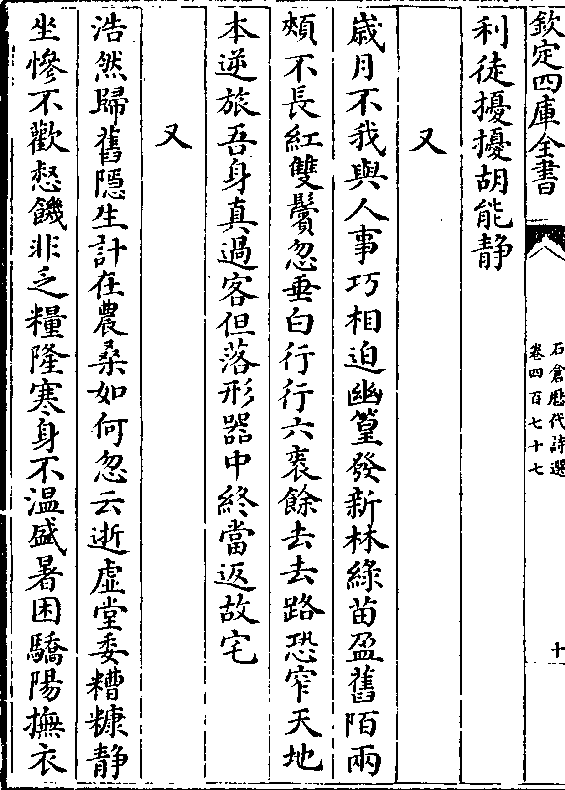 欽定四庫全書
石倉歴代詩選
卷四百七十七
十
利徒擾擾胡能静
又
歳月不我與人事巧相迫幽篁發新林綠苗盈舊陌兩
頰不長紅雙鬢忽垂白行行六袠餘去去路恐窄天地
本逆旅吾身真過客但落形器中終當返故宅
又
浩然歸舊隠生計在農桑如何忽云逝虛堂委糟糠静
坐慘不歡惄饑非乏糧隆寒身不温盛暑困驕陽撫衣